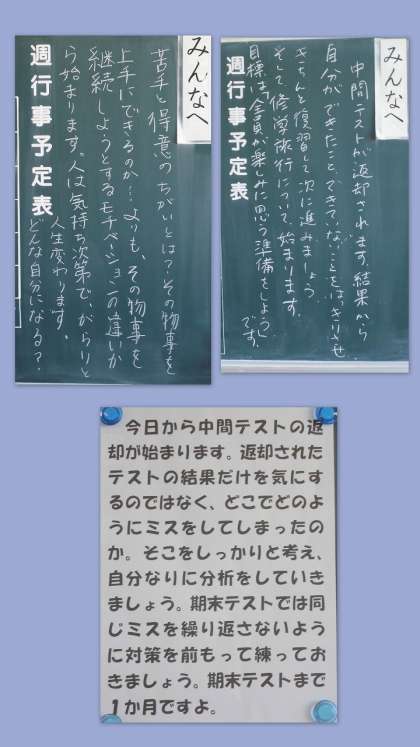 みんなへ
苦手と得意のちがいとは？その物事を
上手にできるのか…よりも、その物事を
継続しようとするモチベーションの違いか
ら始まります。人は気持ち次第で、がらりと
人生変わります。
どんな自分になる？
週行事予定表
みんなへ
中間テストが返却されます。結果から
自分ができたこと、できていないことをはっきりさせ
きちんと復習して次に進みましょう。
そして修学旅行について、始まります。
目標は「全員が楽しみに思う準備をしよう」
です。
週行事予定表
今日から中間テストの返
却が始まります。返却された
テストの結果だけを気にす
るのではなく、どこでどのよ
うにミスをしてしまったの
か。そこをしっかりと考え、
自分なりに分析をしていき
ましょう。期末テストでは同
じミスを繰り返さないよう
に対策を前もって練ってお
きましょう。期末テストまで
１か月ですよ。